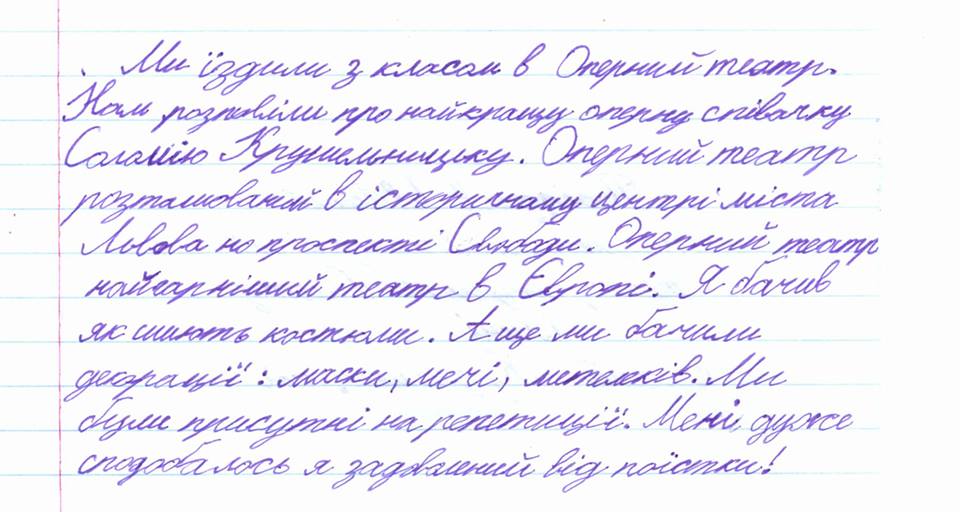 Ми їздили з класом в Оперний театр.
Нам розповіли про найкращу оперну співачку
Соломію Крушельницьку. Оперний театр
розташований в історичному центрі міста
Львова на проспекті Свободи. Оперний театр
найгарніший театр в Європі. Я бачив
як шиють костюми. А ще ми бачили
декорації: маски, мечі, метеликів. Ми
були присутні на репетиції. Мені дуже
сподобалось я задоволений від поїстки!